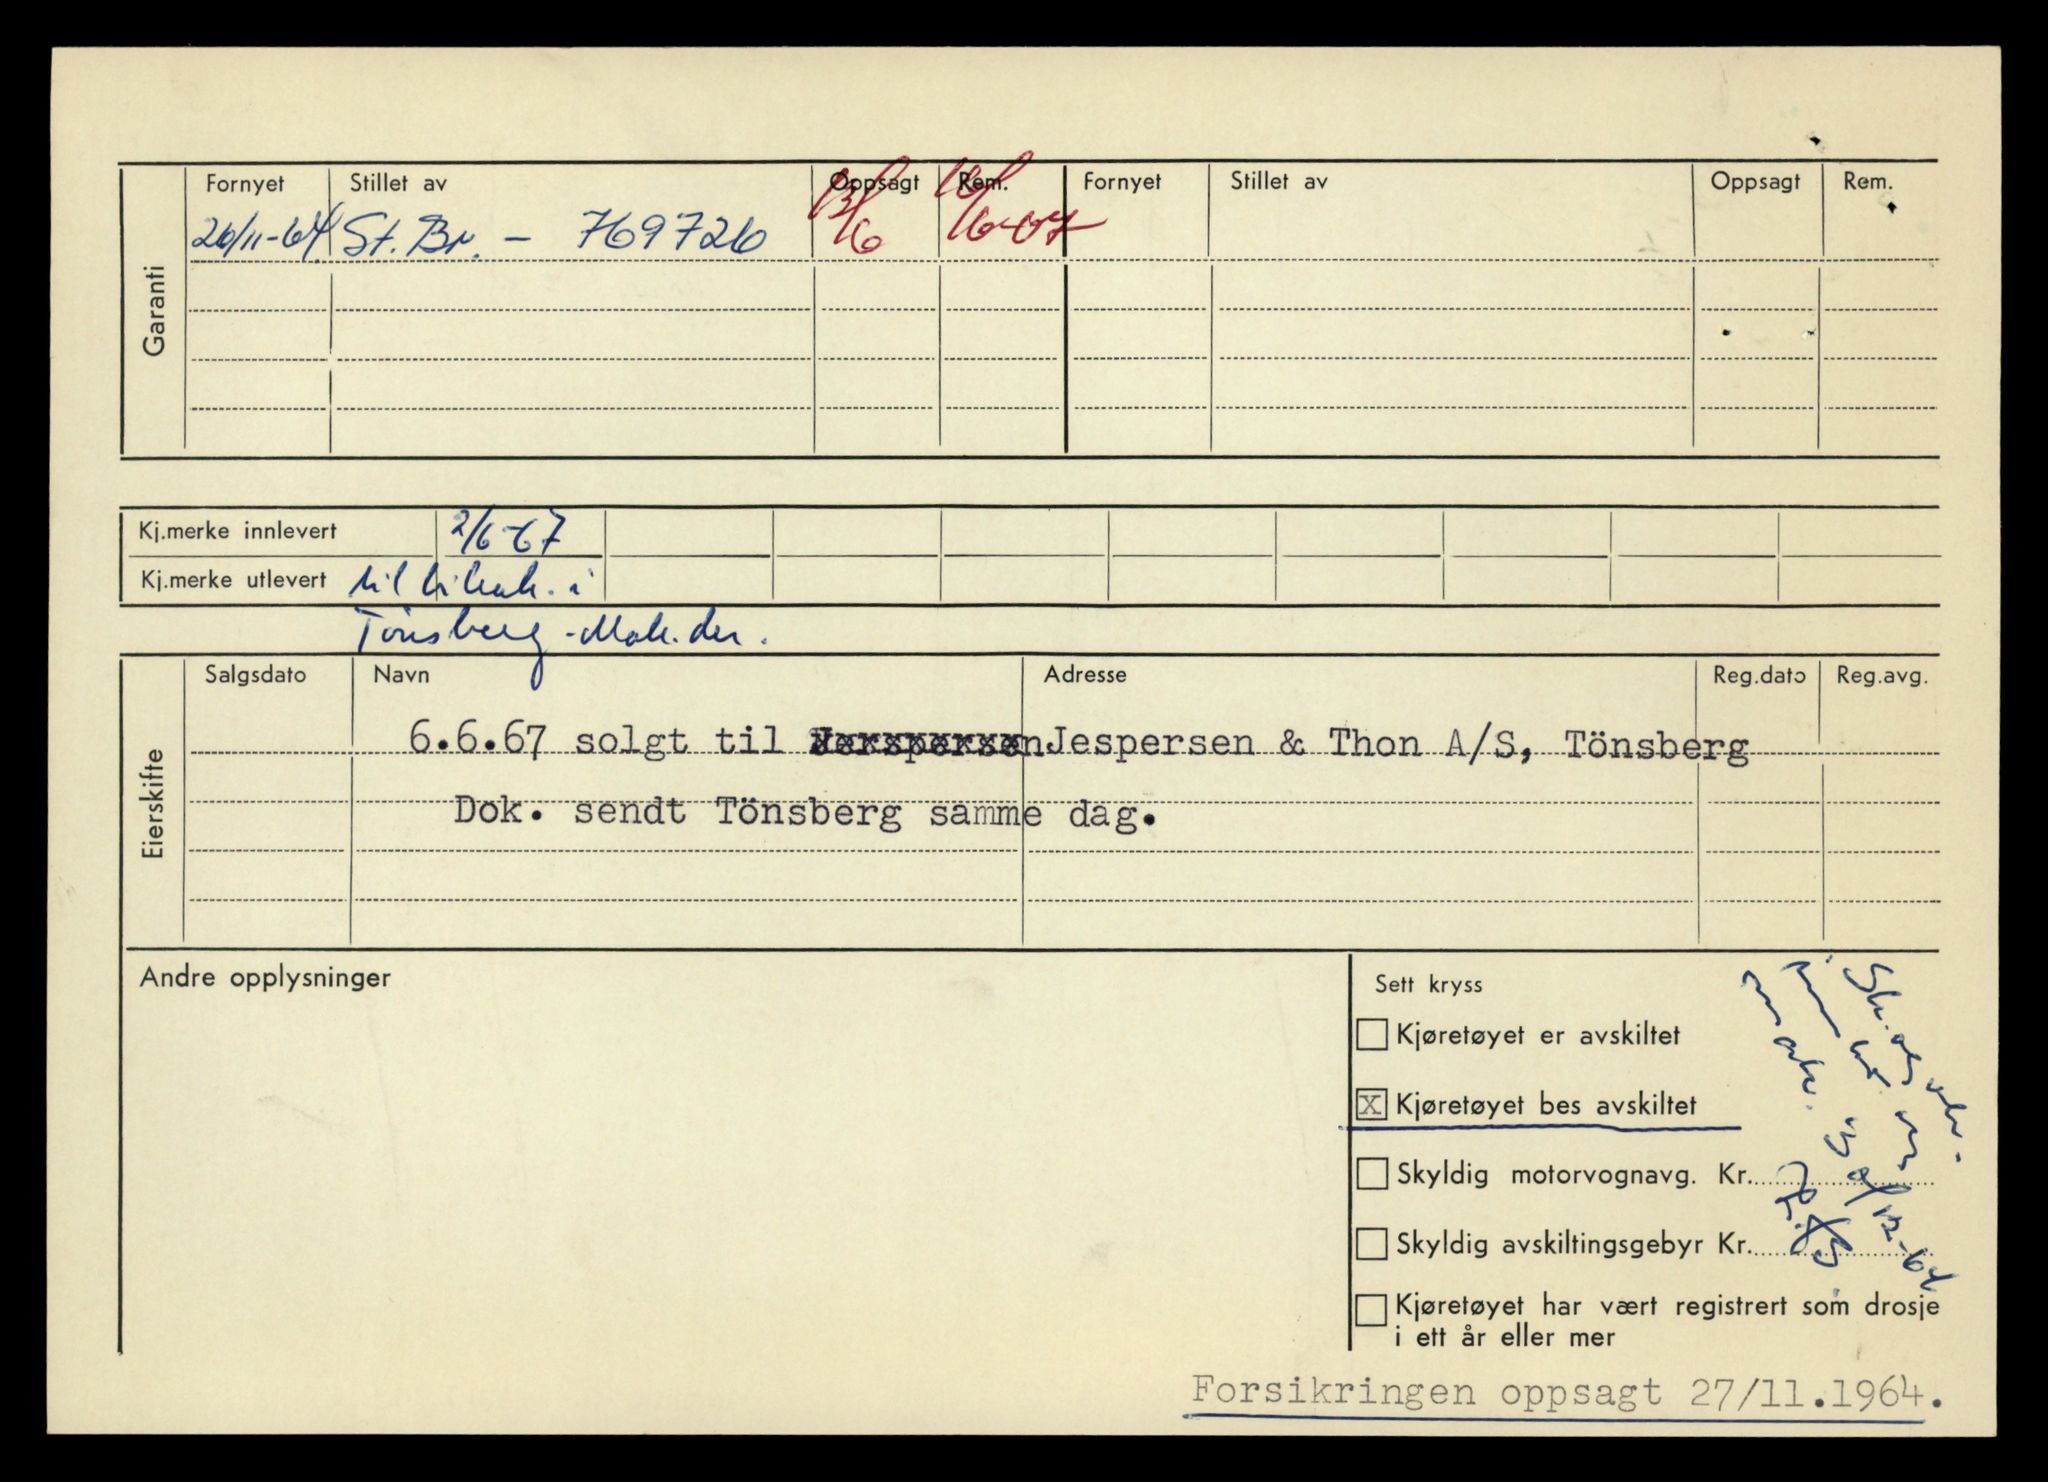 Garanti
Fornyet Stillet av Oppsagt Rem. Fornyet Stillet av Oppsagt Rem.
26/11-64 St. Br. - 769726 13/6 16/6-67
Kj.merke innlevert 2/6-67
Kj.merke utlevert til i
Tönsberg
Eierskifte
Salgsdato Navn Adresse Reg.dato Reg.avg.
6.6.67 solgt til Jespersen & Thon A/S, Tönsberg
Dok. sendt Tönsberg samme dag.
Andre opplysninger
Sett kryss
Kjøretøyet er avskiltet
X Kjøretøyet bes avskiltet
Skyldig motorvognavg. Kr.
Skyldig avskiltingsgebyr Kr.
Kjøretøyet har vært registrert som drosje
i ett år eller mer
Forsikringen oppsagt 27/11.1964.